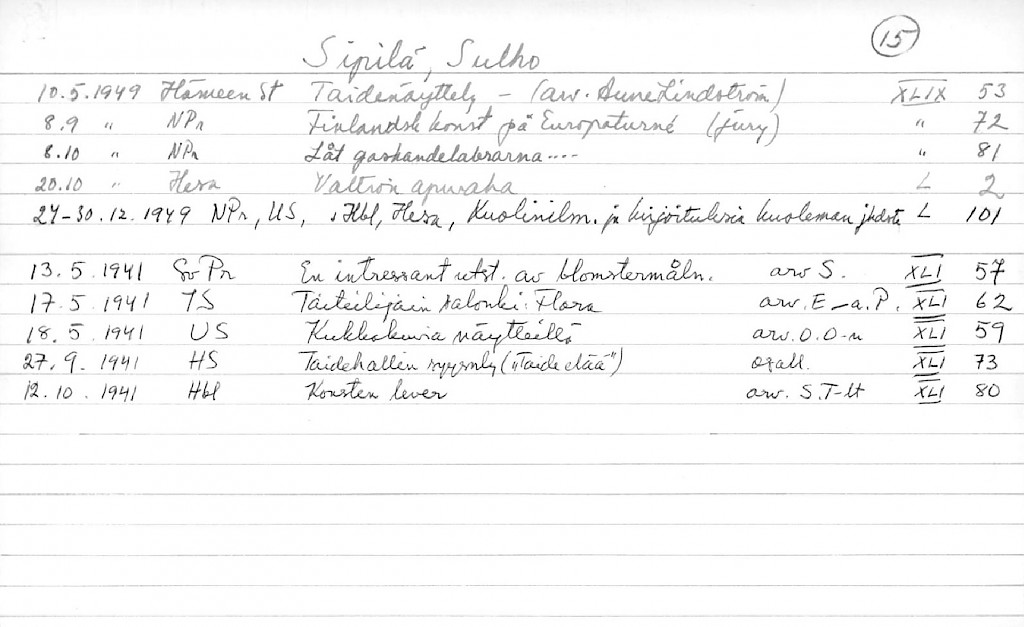 15
Sipilä, Sulho
10.5.1949 Hämeen St Taidenäyttely - (arv. Aune Lindström) XLIX 53
8.9 " NPr Finlandsk konst på Europaturné (jury) " 72
8.10 " NPr Låt gaskandelabrarna.... " 81
20.10 " Hesa Valtion apuraha L 2
27-30.12.1949 NPr, US, Hbl, Hesa, Kuolinilm. ja kirjoituksia kuoleman jhdsta L 101
13.5.1941 Sv Pr En intressant utst. av blomstermåln. arv S. XLI 57
17.5.1941 TS Taiteilijain salonki: Flora arv. E-a.P. XLI 62
18.5.1941 US Kukkakuvia näytteillä arv. O.O-n XLI 59
27.9.1941 HS Taidehallin syysnly ("Taide elää") osall. XLI 73
12.10.1941 Hbl Konsten lever arv. S.T-lt XLI 80